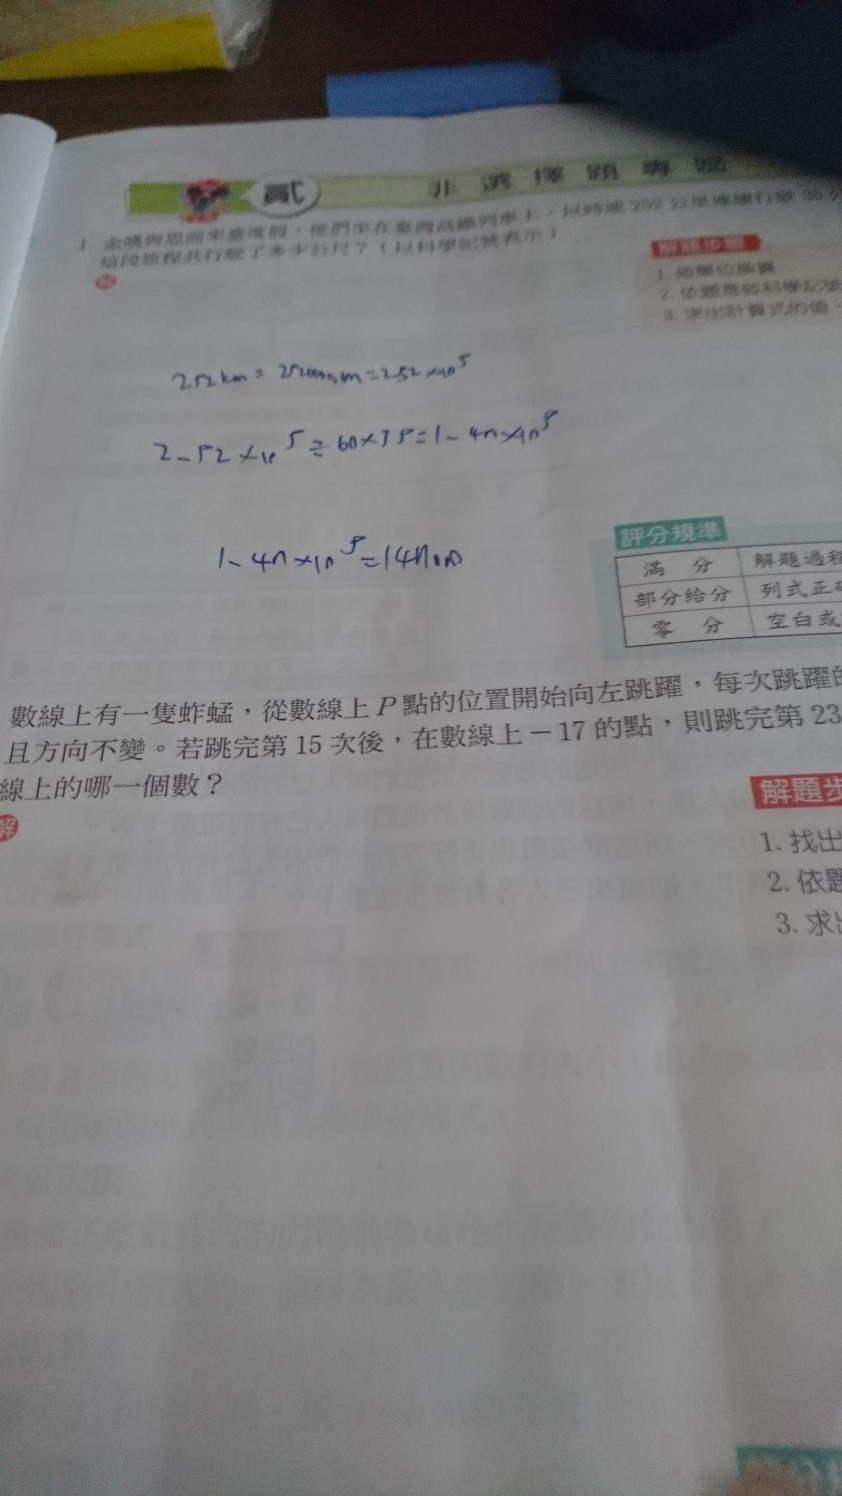 貳 非選擇題專區
1. 他們坐在臺灣高鐵列車上,以時速 252 公里連續行駛 35
這段旅程共行駛了多少公尺?(以科學記號表示)
解
解題步驟
1. 做單位換算
2. 依題意做科學記號
3. 求出計算式的值。
252km = 252000m = 2.52×10⁵
2.52×10⁵÷60×35=1.47×10⁵
1.47×10⁵=147000
評分規準
滿 分 解題過程
部分給分 列式正確
零 分 空白或
數線上有一隻蚱蜢,從數線上 P 點的位置開始向左跳躍,每次跳躍的
且方向不變。若跳完第 15 次後,在數線上 -17 的點,則跳完第 23
線上的哪一個數?
解
解題步
1. 找出
2. 依題
3. 求出